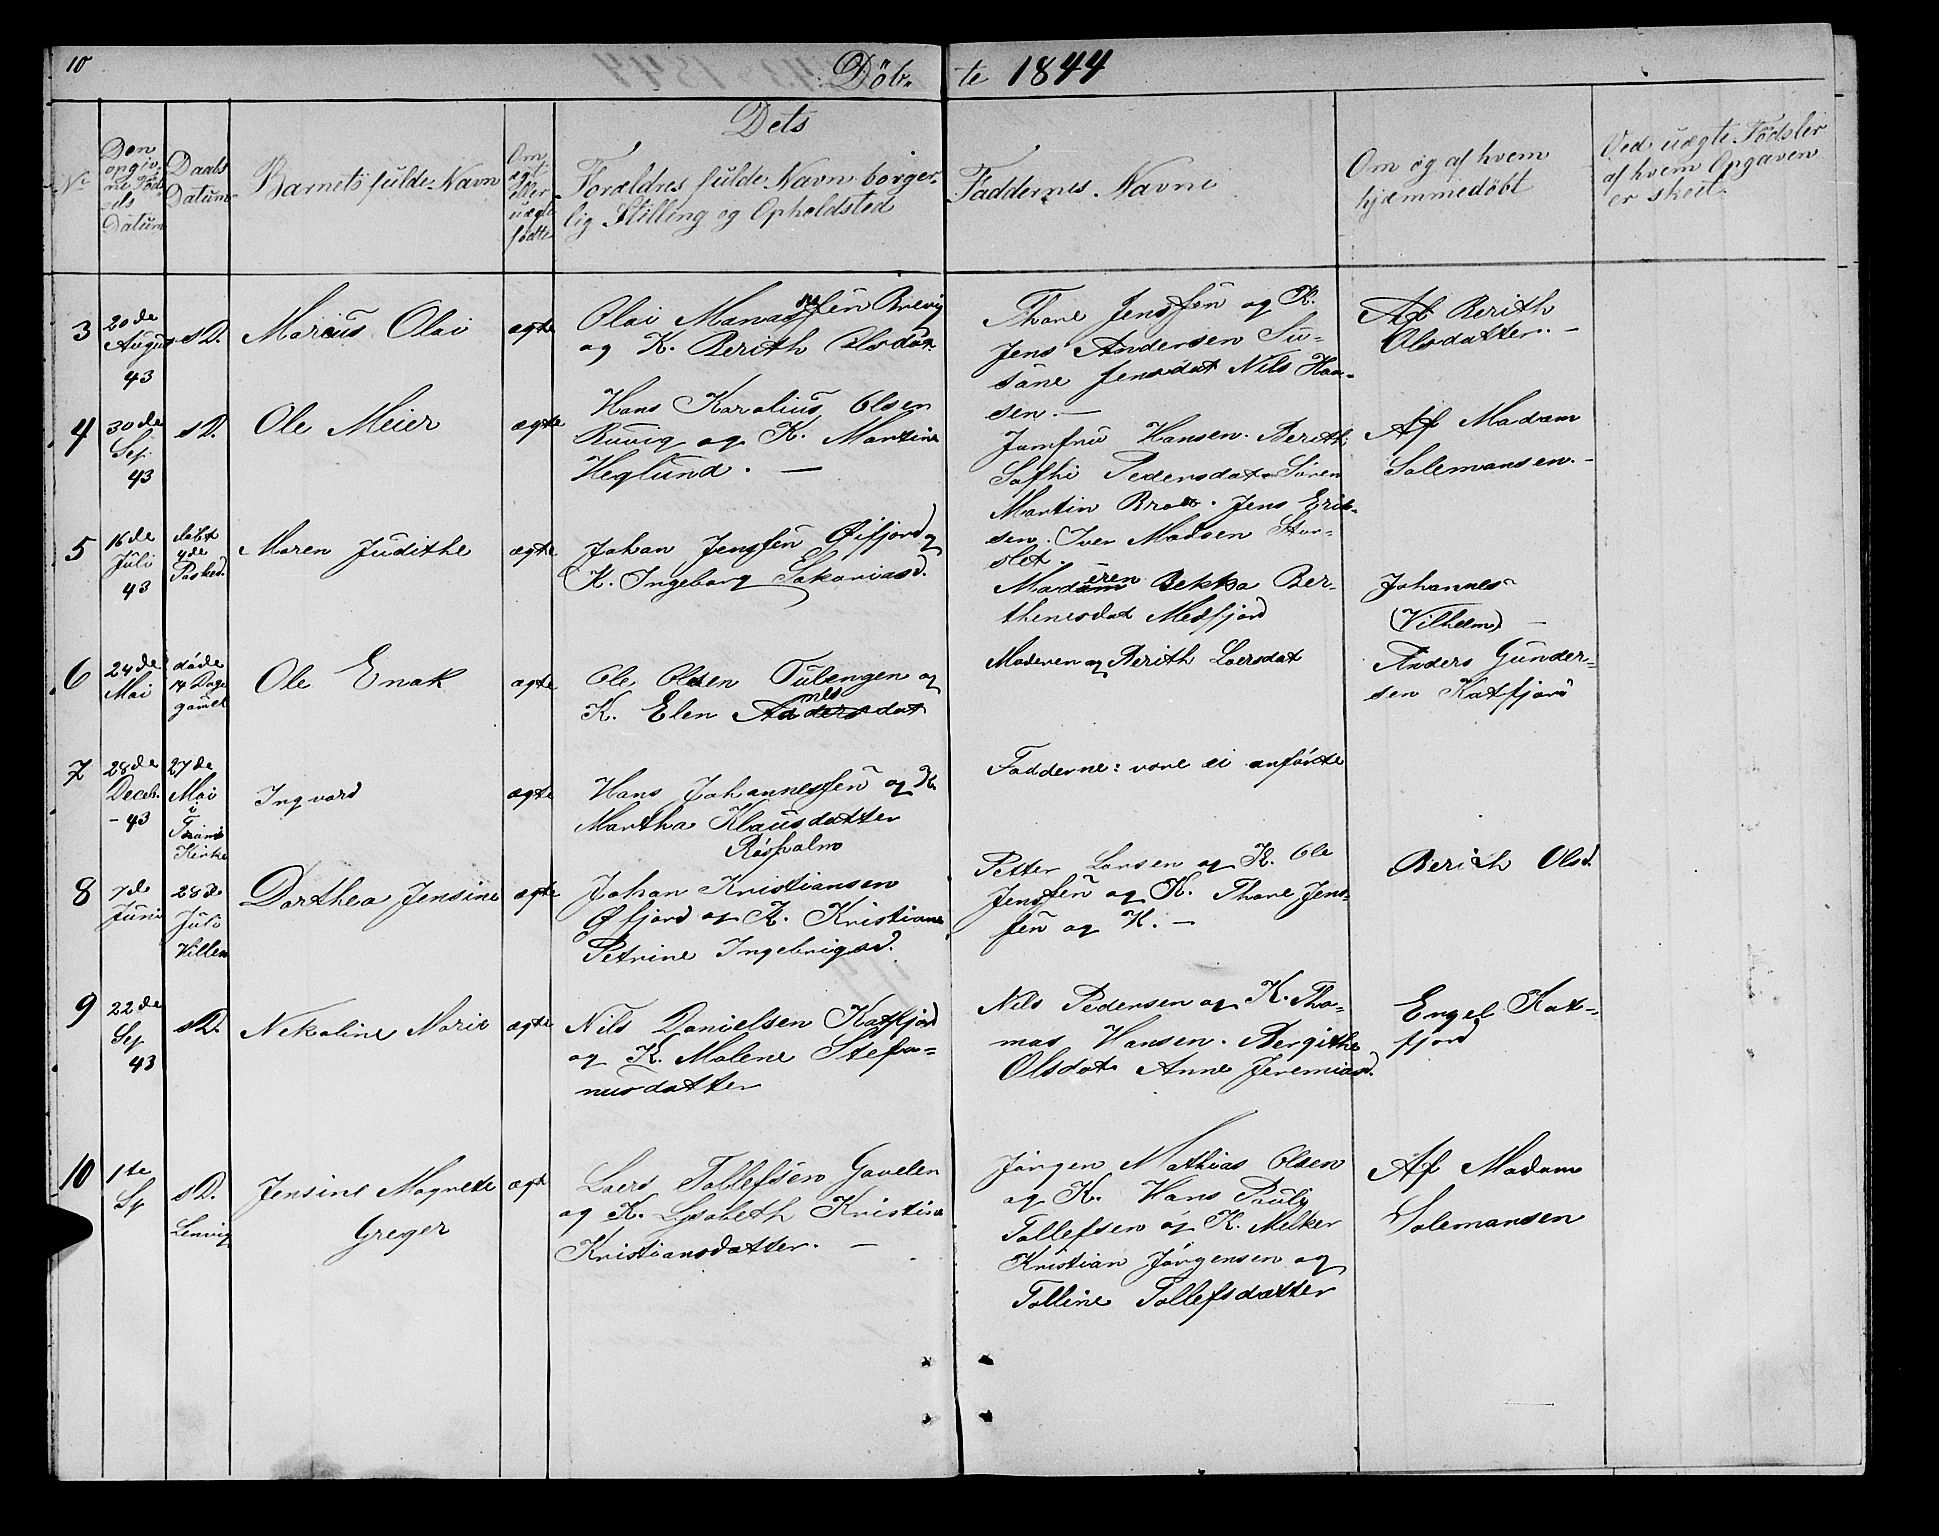 10
Döb-
te 1844
Dets
No
Den opgivne Fødsels Datum
Daabs Datum
Barnets fulde Navn
Om ægte eller uægte fødte
Forældres fulde Navn borger-
lig Stilling og Opholdsted
Faddernes Navne
Om og af hvem
hjemmedöbt
Ved uægte Fødsler
af hvem Opgaven
er skeit.
3
20de
August
43
s D.
Marius Olai
ægte
Olai Manassesen Brevig
og K. Berith Olsdat
Thore Jensen og K.
Jens Andersen Su-
sane Jensdat Nils Han-
sen. —
Af Berith
Olsdatter. —
4
30de
Sep.
43
s D.
Ole Meier
ægte
Hans Karolius Olsen
Ruvig og K. Martine
Heglund. —
Jomfru Hansen. Berith
Sofhi Pedersdat Sören
Martin Brox. Jens Erik-
sen. Iver Madsen Stor-
slet.
Af Madam
Salemansen. -
5
16de
Juli
43
döbt
4de
Pasked.
Maren Judithe
ægte
Johan Jenssen Øifjord og
K. Ingeborg Sakariasd.
Moderen Bekka Ber-
thensdat Medfjord
Johannes
(Vilhelm) —
6
24de
Mai
döde
14 Dage
gamel
Ole Enak
ægte
Ole Olsen Tulengen og
K. Elen Andersdat
Moderen og Berith Laersdat
Anders Gunder-
sen Katfjord
7
28de
Deceb.
- 43
27de
Mai
i
Tranö
Kirke
Ingvard
ægte
Hans Johannessen og K.
Martha Klausdatter
Rösholm
Fadderne: vare ei anförte
8
7de
Juni
28de
Juli
Hillesø
Dorthea Jensine
ægte
Johan Kristiansen
Øfjord og K. Kristiane
Petrine Ingebrigsd.
Petter Larsen og K. Ole
Jenssen og K. Thore Jens-
sen og K. —
Berith Olsd.
9
22de
Sep
43
s D.
Nekoline Marie
ægte
Nils Danielsen Katfjord
og K. Malene Stefa-
nusdatter
Nils Pedersen og K. Tho-
mas Hansen. Bergithe
Olsdat Anne Jeremiasd.
Engel Kat-
fjord
10
1te
Sp
s D.
Lenvig
Jensine Magrete
Greger
ægte
Laers Tollefsen Gavelen
og K. Lisabeth Kristine
Kristiansdatter. —
Jörgen Mathias Olsen
og K. Hans Pauli
Tollefsen og K. Melker
Kristian Jörgensen og
Tolline Tollefsdatter
Af Madam
Salemansen